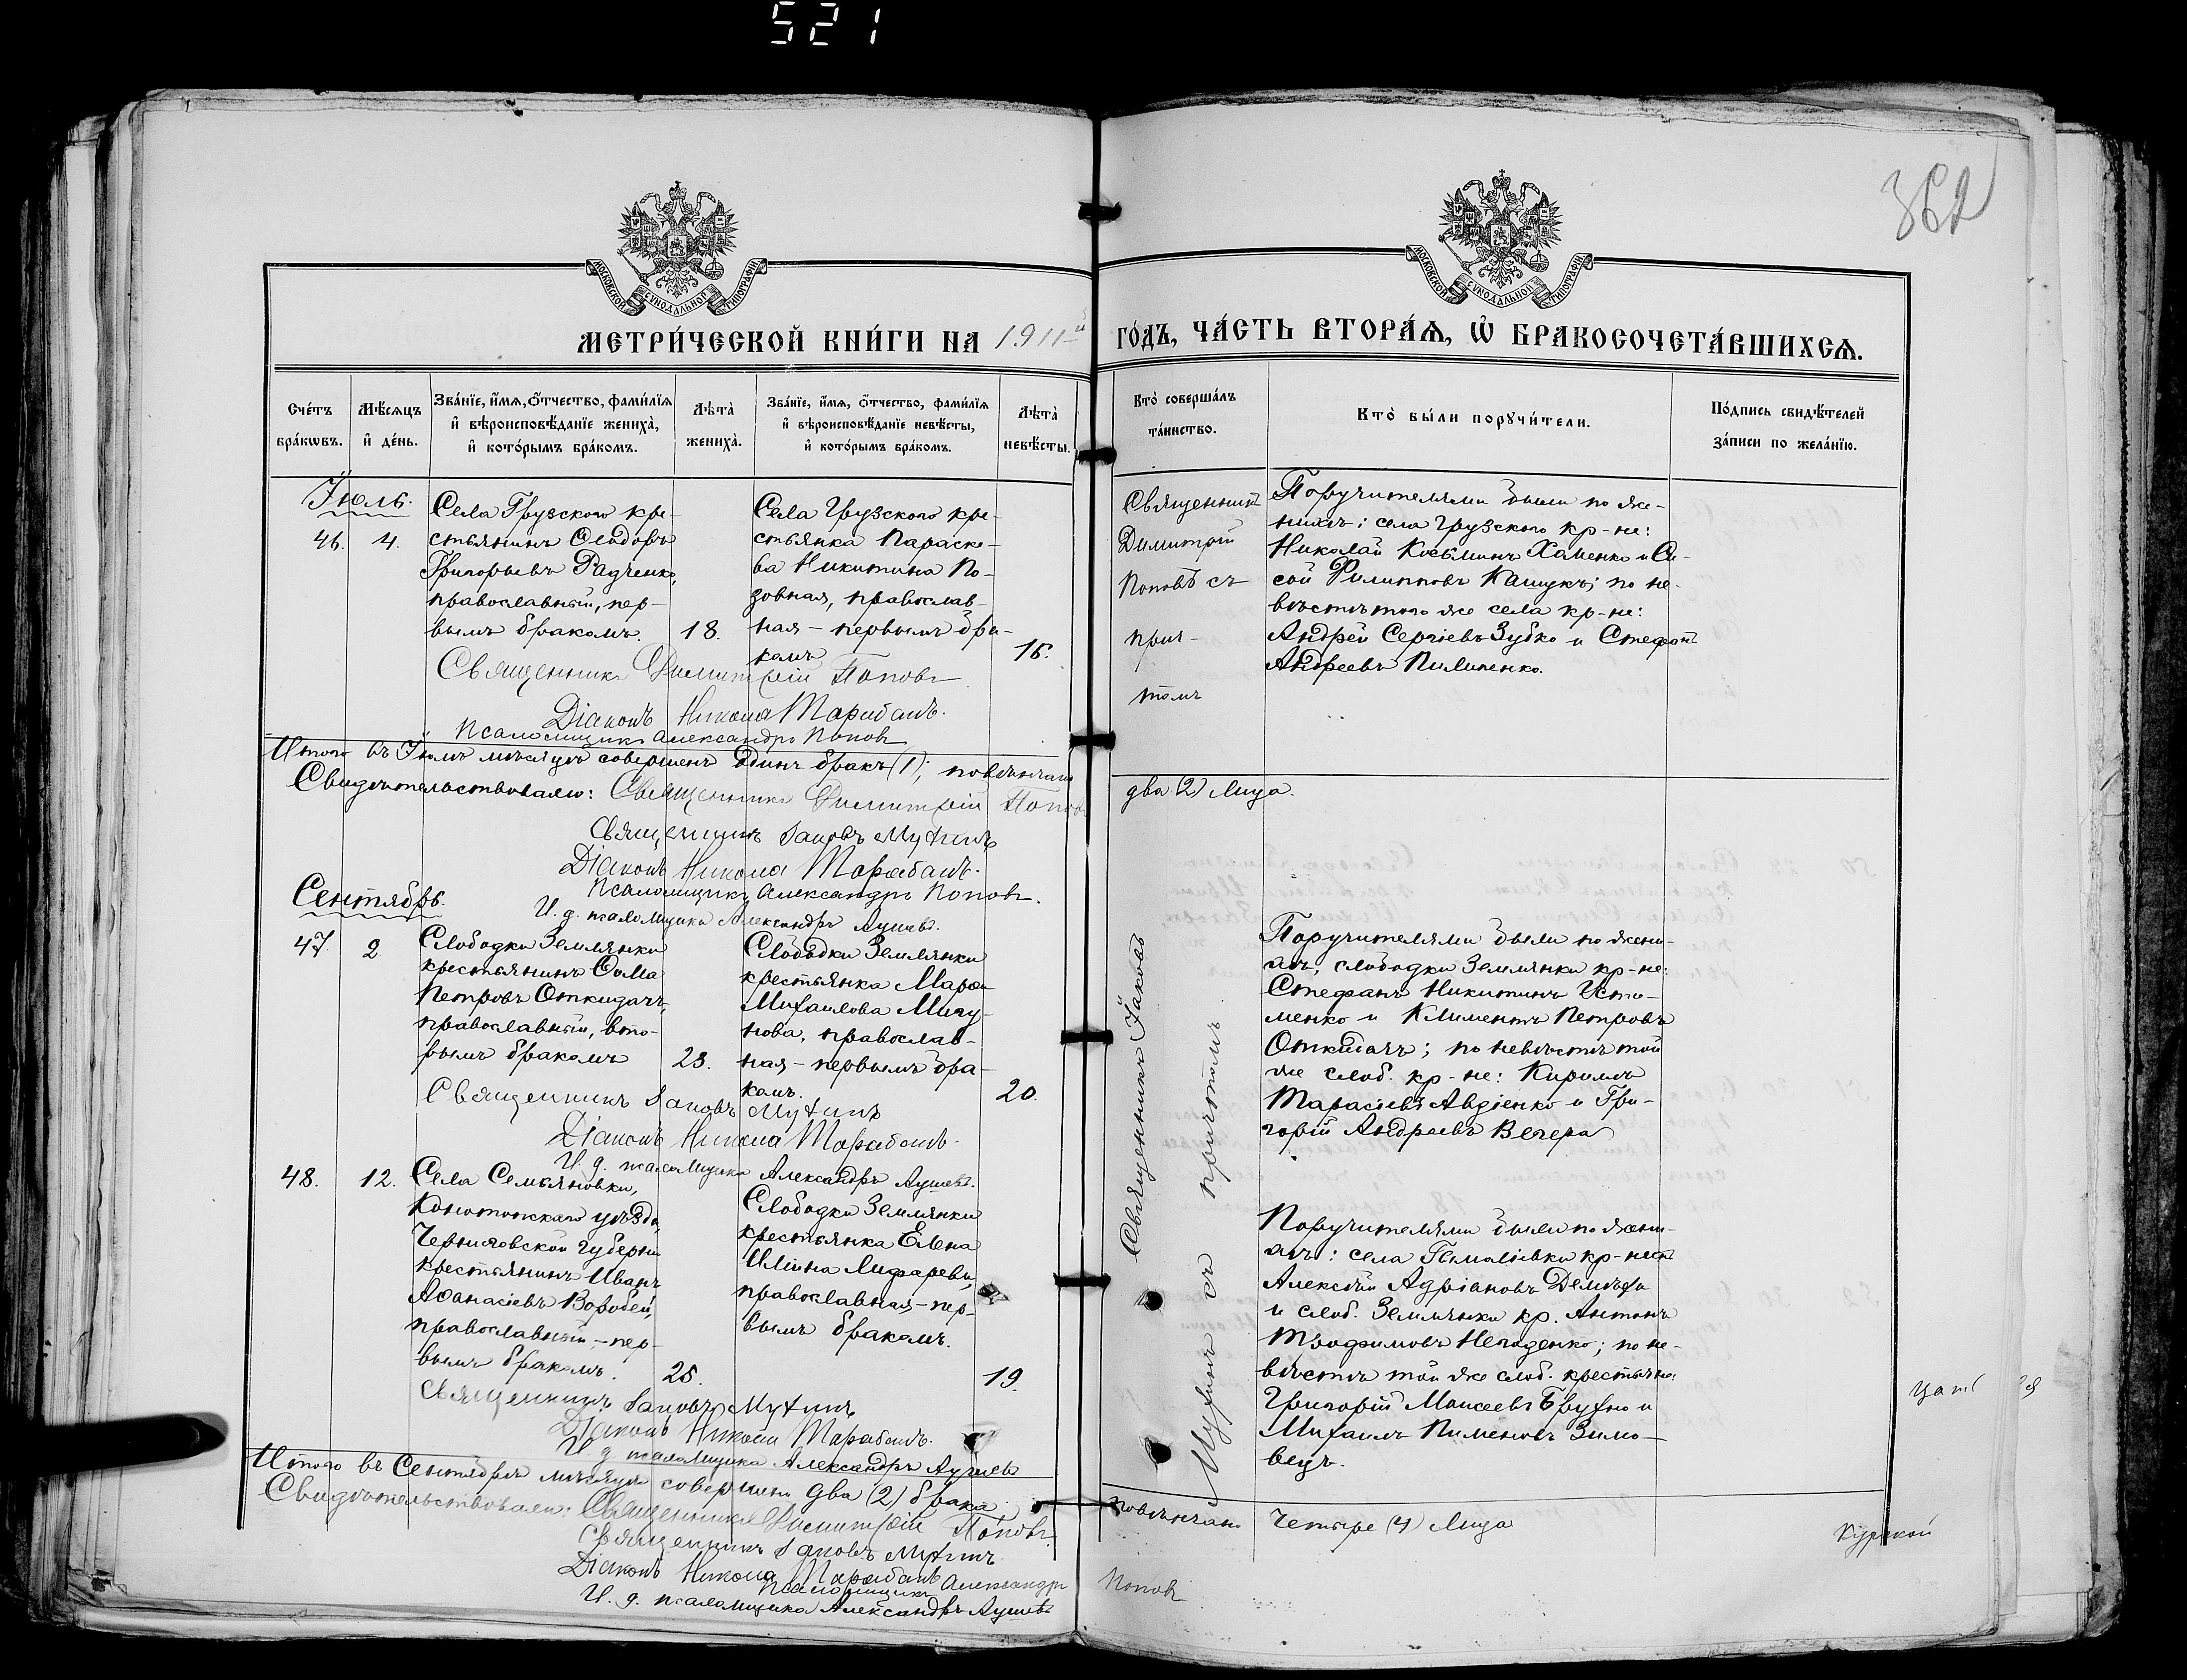 521
362
МОСКОВСКОЙ СУНОДАЛЬНОЙ ТИПОГРАФІИ
МОСКОВСКОЙ СУНОДАЛЬНОЙ ТИПОГРАФІИ
МЕТРИ́ЧЕСКОЙ КНИ́ГИ НА 1911й
ГО́ДЪ, ЧА́СТЬ ВТОРА́Ѧ, Ѡ҆ БРАКОСОЧЕТА́ВШИХСѦ.
Сче́тъ бра́кѡвъ.
Мѣ́сяцъ и҆ де́нь.
Зва́нїе, и҆́мѧ, ѻ҆́тчество, фами́лїѧ и҆ вѣроисповѣ́данїе жениха̀, и҆ кото́рымъ бра́комъ.
Лѣта̀ жениха̀.
Зва́нїе, и҆́мѧ, ѻ҆́тчество, фами́лїѧ и҆ вѣроисповѣ́данїе невѣ́сты, и҆ кото́рымъ бра́комъ.
Лѣта̀ невѣ́сты.
Кто̀ соверша́лъ та́инство.
Кто̀ бы́ли порꙋчи́тели.
По́дпись свидѣ́телей за́писи по жела́нїю.
Іюль.
46. 4.
Села Грузского кре-
стьянинъ Ѳеодоръ
Григорьевъ Радченко,
православный, пер-
вымъ бракомъ. 18.
Села Грузского кре-
стьянка Параске-
ва Никитина По-
зовная, православ-
ная – первымъ бра-
комъ 16.
Священникъ
Димитрій
Поповъ съ
прич-
томъ
Поручителями были по же-
нихѣ: села Грузского кр-не:
Николай Косьминъ Хаменко и Си-
сой Филипповъ Кашукъ; по не-
вѣстѣ того же села кр-не:
Андрей Сергіевъ Зубко и Стефанъ
Андреевъ Пилипенко.
Священникъ Димитрій Поповъ
Діаконъ Никола Тарабанъ.
Псаломщикъ Александръ Поповъ
Итого въ Іюлѣ мѣсяцѣ совершенъ Одинъ бракъ (1); повѣнчано
два (2) Лица.
Свидѣтельствовали: Священникъ Димитрій Поповъ
Священникъ Іаковъ Мухинъ
Діаконъ Никола Тарабанъ.
Псаломщикъ Александръ Поповъ.
И. д. псаломщика Александръ Аушевъ.
Сентябрь.
47. 2
Слободки Землянки
крестьянинъ Ѳома
Петровъ Откидачъ,
православный, вто-
рымъ бракомъ 23.
Слободки Землянки
крестьянка Марѳа
Михаилова Мигу-
нова, православ-
ная – первымъ бра-
комъ. 20.
Священникъ Іаковъ
Мухинъ съ причтомъ
Поручителями были по жени-
хѣ; слободки Землянки кр-не:
Стефанъ Никитинъ Усти-
менко и Климентъ Петровъ
Откидачъ; по невѣстѣ той
же слоб. кр-не: Кириллъ
Тарасіевъ Авдіенко и Гри-
горій Андреевъ Вечера
Священникъ Іаковъ Мухинъ
Діаконъ Никола Тарабанъ.
И. д. псаломщика Александръ Аушевъ.
48. 12.
Села Семьяновки,
Конотопскаго уѣзда,
Черниговской губерніи
крестьянинъ Иванъ
Аѳанасіевъ Воробей,
православный, – пер-
вымъ бракомъ. 25.
Слободки Землянки
крестьянка Елена
Иліина Лифарева,
православная – пер-
вымъ бракомъ. 19.
Поручителями были по жени-
хѣ: села Гамаліевки кр-нинъ
Алексѣй Адріановъ Демьеха
и слоб. Землянки кр. Антонъ
Трофимовъ Негоденко; по не-
вѣстѣ той же слоб. крестьяне:
Григорій Моисеевъ Брухно и
Михаилъ Пименовъ Зимо-
вецъ.
Священникъ Іаковъ Мухинъ
Діаконъ Никола Тарабанъ.
И. д. псаломщика Александръ Аушевъ
Итого въ Сентябрѣ мѣсяцѣ совершено два (2) брака
повѣнчано Четыре (4) Лица
Свидѣтельствовали: Священникъ Димитрій Поповъ.
Священникъ Іаковъ Мухинъ
Діаконъ Никола Тарабанъ
Псаломщикъ Александръ
Поповъ
И. д. псаломщика Александръ Аушевъ